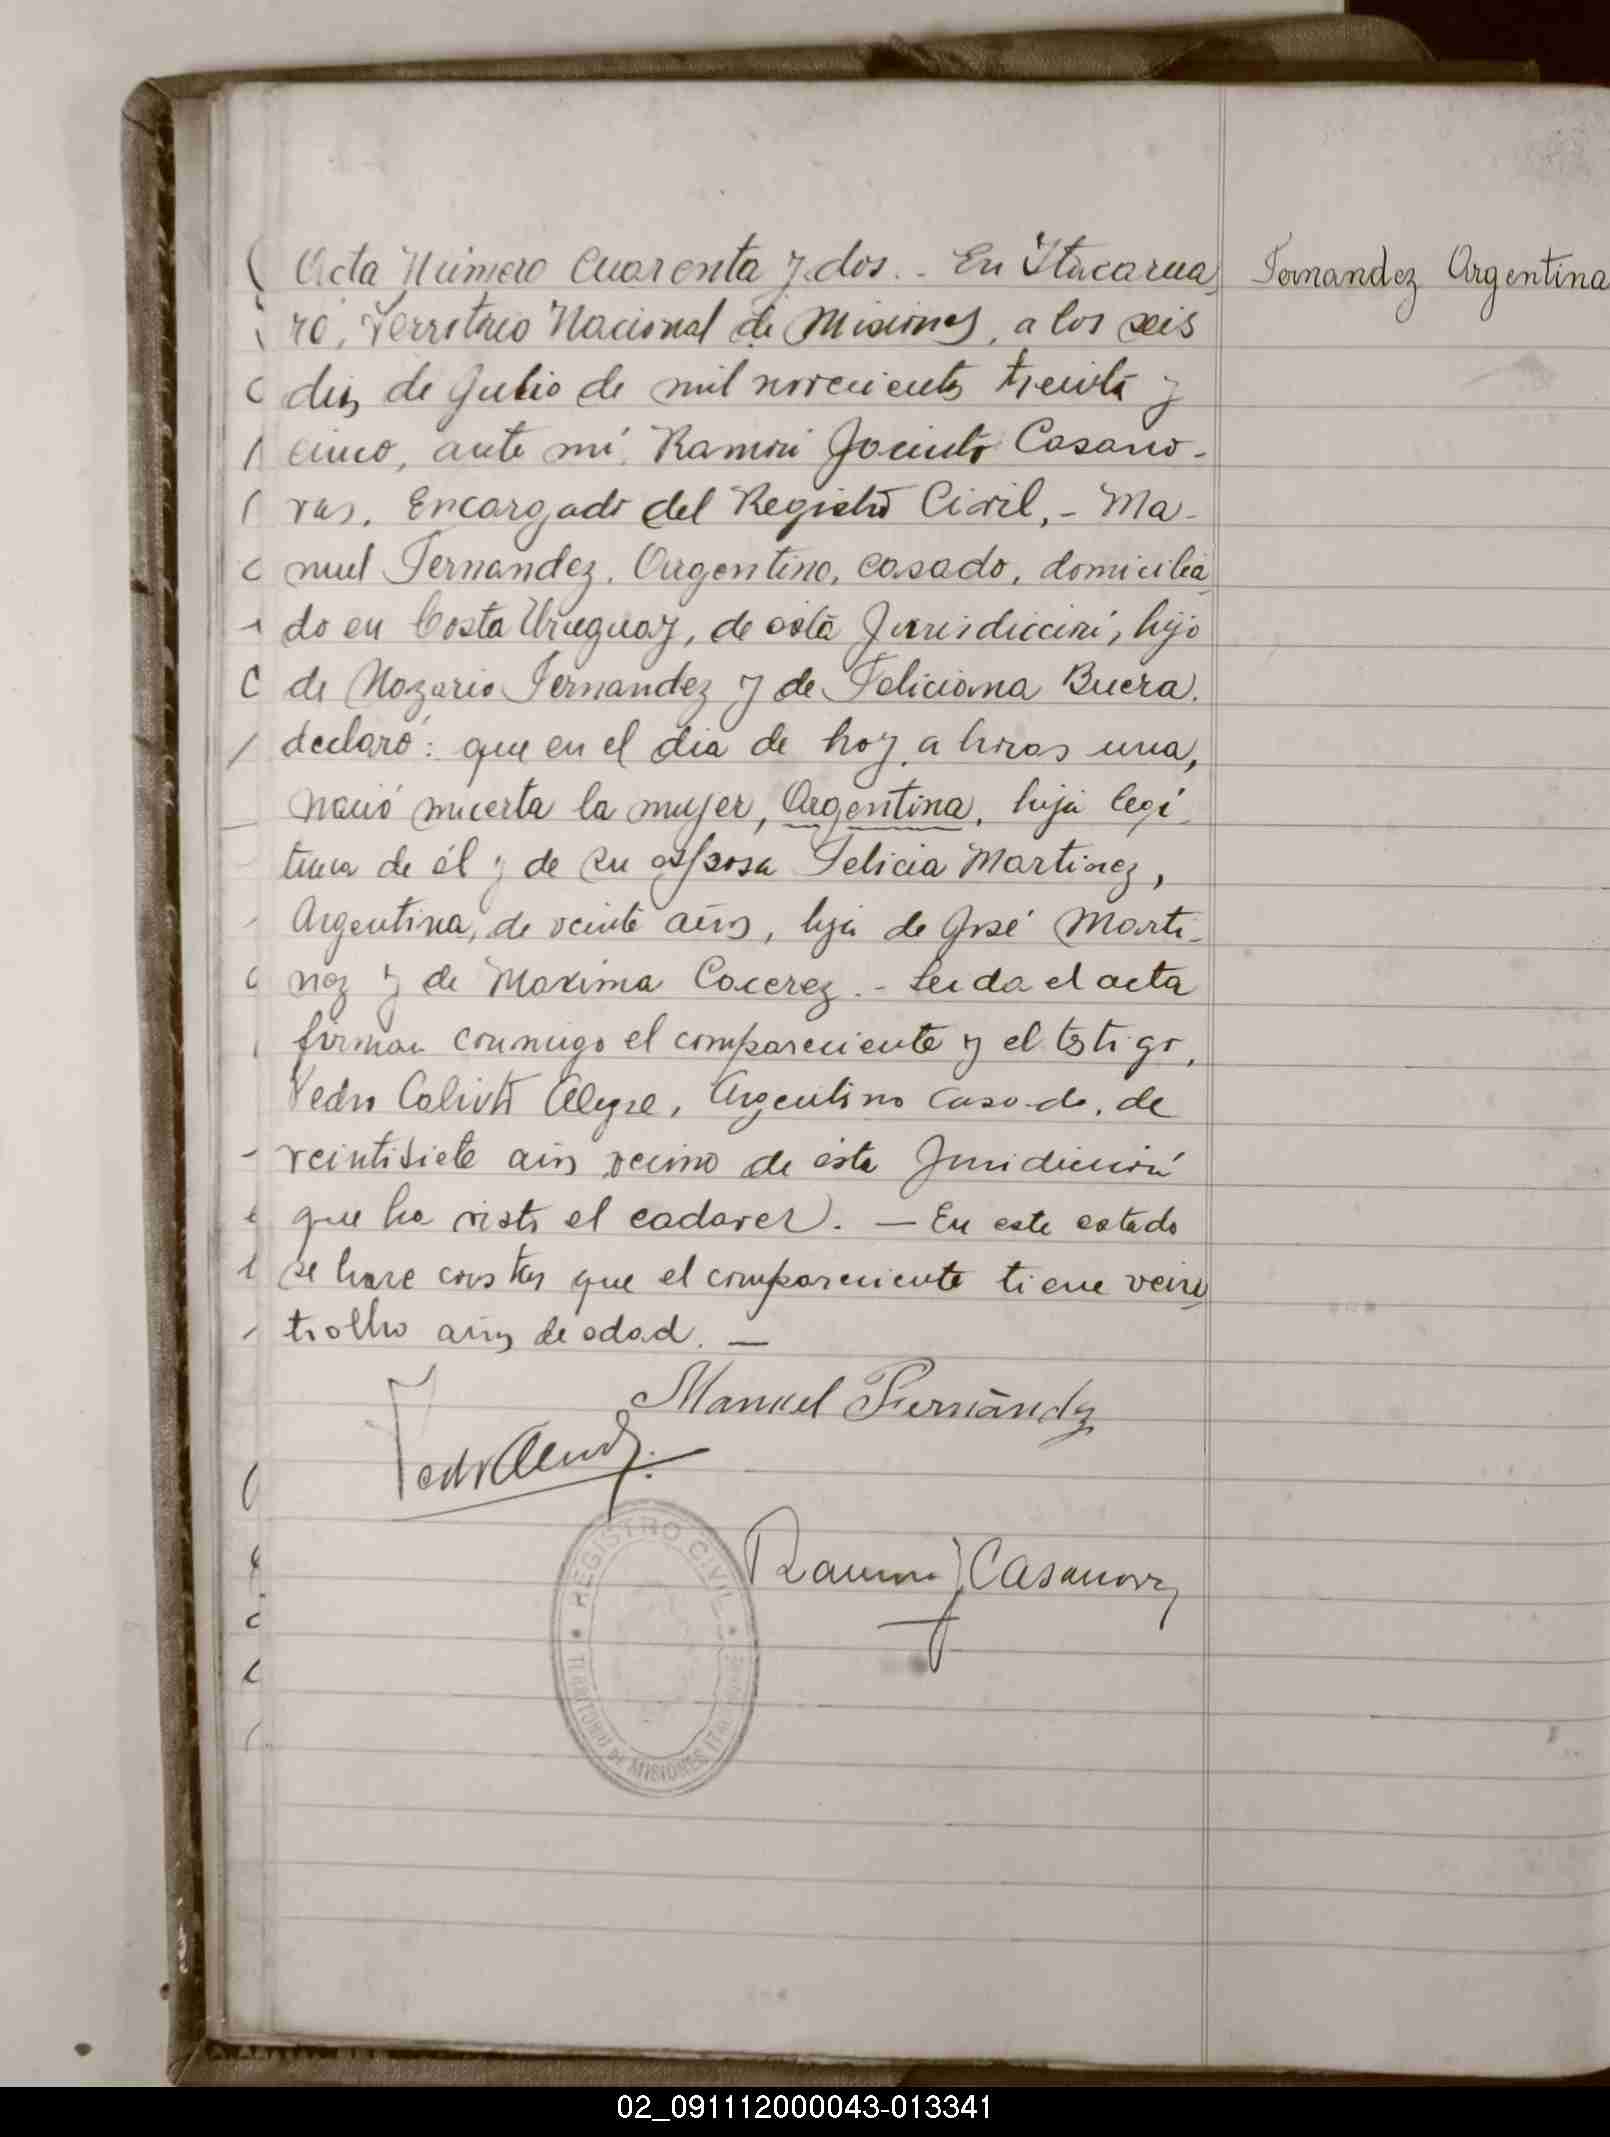 Acta Número Cuarenta y dos.- En Itacarua
Fernandez Argentina
ró, Territorio Nacional de Misiones, a los seis
dias de Julio de mil novecientos treinta y
cinco, ante mí, Ramón Jacinto Casano-
vas, Encargado del Registro Civil,- Ma-
nuel Fernandez, Argentino, casado, domicilia
do en Costa Uruguay, de ésta Jurisdicción, hijo
de Nazario Fernandez y de Feliciana Buera,
declaró: que en el dia de hoy, a horas una,
nació muerta la mujer, Argentina, hija legi
tima de él y de su esposa Felicia Martinez,
Argentina, de veinte años, hija de José Marti-
nez y de Maxima Cacerez.- Leida el acta
firman conmigo el compareciente y el testigo,
Pedro Calixto Alegre, Argentino casado, de
veintisiete años vecino de ésta Juridicción
que ha visto el cadaver.- En este estado
se hace constar que el compareciente tiene vein
tiocho años de edad.-
Manuel Fernández
Ramón J Casanovas
REGISTRO CIVIL
TERRITORIO DE MISIONES
02_091112000043-013341